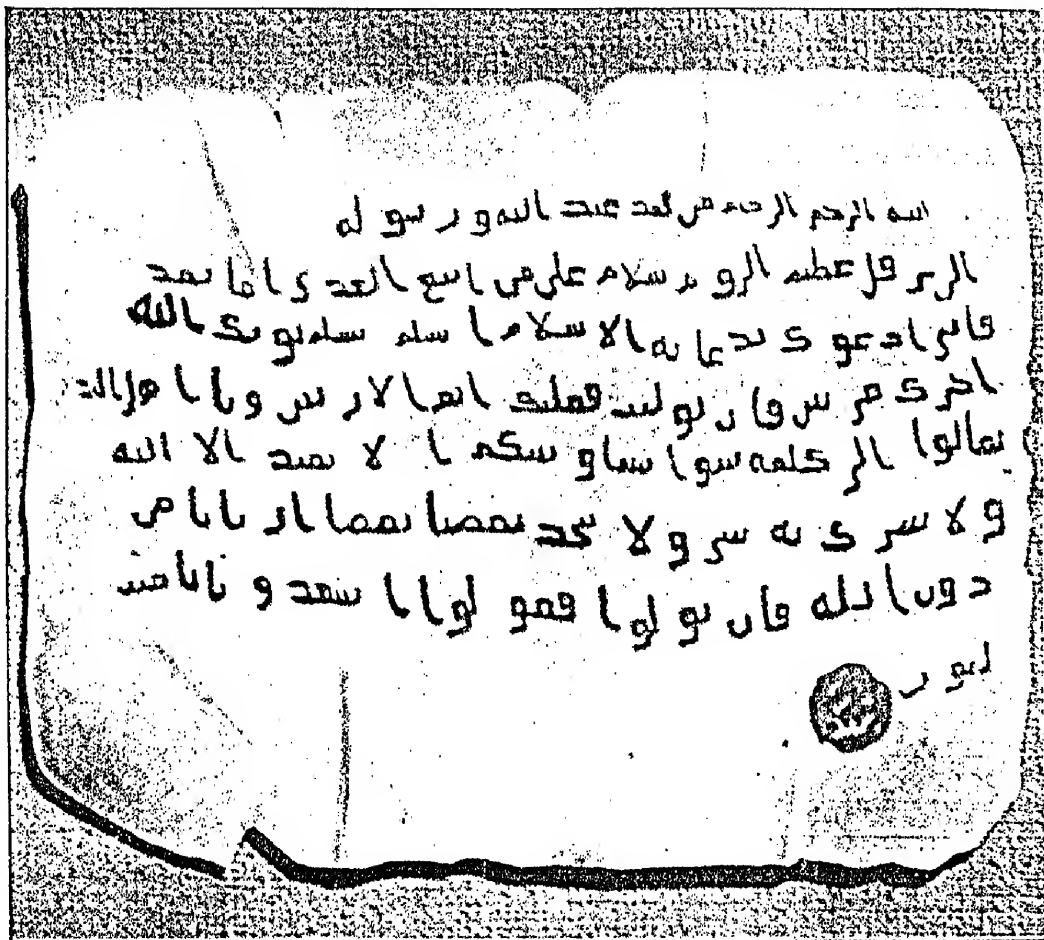 الله الرحمن الرحيم من محمد عبد الله و رسوله
الى هرقل عظيم الروم سلام على من اتبع الهدى اما بعد
فانى ادعوك بدعاية الاسلام اسلم تسلم يوتك الله
اجرك مرتين فان توليت فعليك اثم الاريسين و يا اهل
تعالوا الى كلمة سوا بيننا و بينكم ا لا نعبد الا الله
و لا نشرك به شى و لا يتخذ بعضنا بعضا ار بابا من
دون الله فان تولوا فقولوا ا شهدو ا بانا